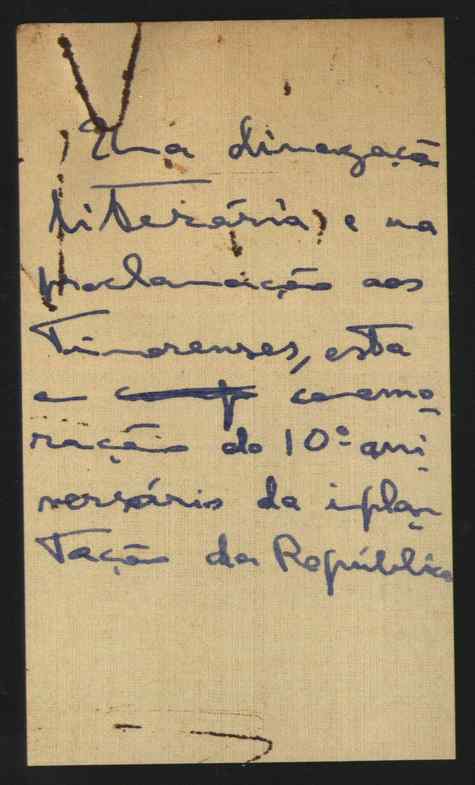 Uma divagação
literária, e na
proclamação aos
Timorenses, esta
em comemo-
ração do 10º ani-
versário da implan-
tação da República